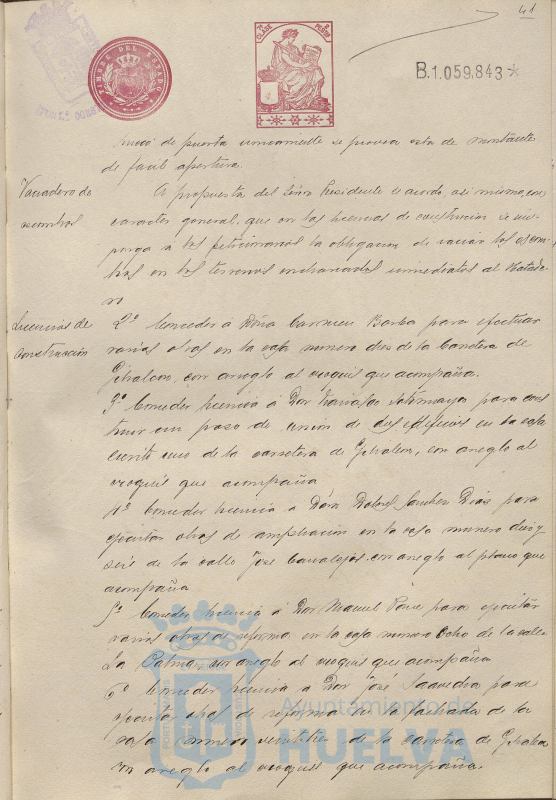 41
TIMBRE DEL ESTADO
7ª CLASE
B.1.059.843*
de puerta unicamente se provea esta de montante
de facil apertura.
Vaciadero de
escombros
A propuesta del Señor Presidente se acordó, asi mismo, con
caracter general, que en las licencias de construccion se im-
ponga a los peticionarios la obligacion de vaciar los escom-
bros en los terrenos inmediatos al Matade-
ro
Licencias de
Construcción
2º Conceder á Doña Carmen Borba para efectuar
varias obras en la casa numero dos de la Carretera de
Gibraleon, con arreglo al croquis que acompaña.
3º Conceder licencia á Don Sotomayor para cons
truir un paso de union de dos edificios en la casa
uno de la carretera de Gibraleon, con arreglo al
croquis que acompaña
4º Conceder licencia á Sanchez Dias para
ejecutar obras de ampliacion en la casa numero diez y
seis de la calle José Canalejas, con arreglo al plano que
acompaña
5º Conceder licencia á Don Manuel Ponce para ejecutar
varias obras de reforma en la casa numero ocho de la calle
La Palma, con arreglo al croquis que acompaña
6º Conceder licencia á Don José Saavedra para
ejecutar obras de reforma en la fachada de la
casa numero de la carretera de Gibraleon
con arreglo al croquis que acompaña.
Ayuntamiento de
HUELVA